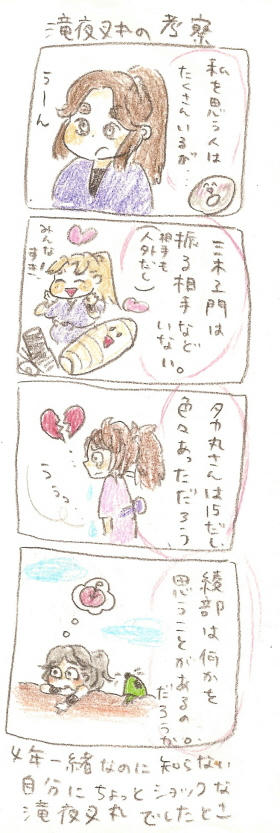 滝夜叉丸の考察
私を思う人は
たくさんいるが…
うーん
三木ヱ門は
振る相手など
いない。
(相手も
人外だし)
みんな
すきっ
タカ丸さんは15だし
色々あっただろう
うるっ
綾部は何かを
思うことがあるの
だろうか。
4年一緒なのに知らない
自分にちょっとショックな
滝夜叉丸でしたとさ